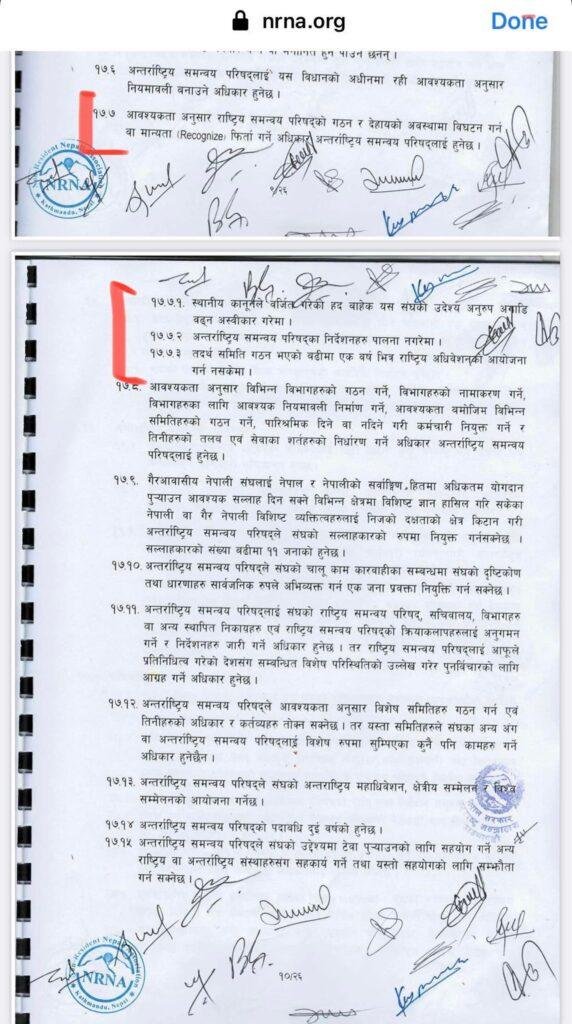 nrna.org
Done
१७.६ अन्तर्राष्ट्रिय समन्वय परिषद्लाई यस विधानको अधीनमा रही आवश्यकता अनुसार
नियमावली बनाउने अधिकार हुनेछ ।
१७.७ आवश्यकता अनुसार राष्ट्रिय समन्वय परिषद्को गठन र देहायको अवस्थामा विघटन गर्न
वा मान्यता (Recognize) फिर्ता गर्ने अधिकार अन्तर्राष्ट्रिय समन्वय परिषद्लाई हुनेछ ।
NRNA
Kathmandu, Nepal
९/२६
१७.७.१. स्थानीय कानूनले वर्जित गरेको हद बाहेक यस संघको उदेश्य अनुरुप अगाडि
बढ्न अस्वीकार गरेमा ।
१७.७.२ अन्तर्राष्ट्रिय समन्वय परिषद्का निर्देशनहरु पालना नगरेमा ।
१७.७.३ तदर्थ समिति गठन भएको बढीमा एक वर्ष भित्र राष्ट्रिय अधिवेशनको आयोजना
गर्न नसकेमा ।
१७.८. आवश्यकता अनुसार विभिन्न विभागहरुको गठन गर्ने, विभागहरुको नामाकरण गर्ने,
विभागहरुका लागि आवश्यक नियमावली निर्माण गर्ने, आवश्यकता बमोजिम विभिन्न
समितिहरुको गठन गर्ने, पारिश्रमिक दिने वा नदिने गरी कर्मचारी नियुक्त गर्ने र
तिनीहरुको तलव एवं सेवाका शर्तहरुको निर्धारण गर्ने अधिकार अन्तर्राष्ट्रिय समन्वय
परिषद्लाई हुनेछ ।
१७.९. गैरआवासीय नेपाली संघलाई नेपाल र नेपालीको सर्वाङ्गिण हितमा अधिकतम योगदान
पुऱ्याउन आवश्यक सल्लाह दिन सक्ने विभिन्न क्षेत्रमा विशिष्ट ज्ञान हासिल गरि सकेका
नेपाली वा गैर नेपाली विशिष्ट व्यक्तित्वहरुलाई निजको दक्षताको क्षेत्र किटान गरी
अन्तर्राष्ट्रिय समन्वय परिषद्ले संघको सल्लाहकारको रुपमा नियुक्त गर्नसक्नेछ ।
सल्लाहकारको संख्या बढीमा ११ जनाको हुनेछ ।
१७.१०. अन्तर्राष्ट्रिय समन्वय परिषद्ले संघको चालू काम कारवाहीका सम्बन्धमा संघको दृष्टिकोण
तथा धारणाहरु सार्वजनिक रुपले अभिव्यक्त गर्न एक जना प्रवक्ता नियुक्ति गर्न सक्नेछ ।
१७.११. अन्तर्राष्ट्रिय समन्वय परिषद्लाई संघको राष्ट्रिय समन्वय परिषद्, सचिवालय, विभागहरु
वा अन्य स्थापित निकायहरु एवं राष्ट्रिय समन्वय परिषद्को क्रियाकलापहरुलाई अनुगमन
गर्ने र निर्देशनहरु जारी गर्ने अधिकार हुनेछ । तर राष्ट्रिय समन्वय परिषद्लाई आफूले
प्रतिनिधित्व गरेको देशसंग सम्बन्धित विशेष परिस्थितिको उल्लेख गरेर पुनर्विचारको लागि
आग्रह गर्ने अधिकार हुनेछ ।
१७.१२. अन्तर्राष्ट्रिय समन्वय परिषद्ले आवश्यकता अनुसार विशेष समितिहरु गठन गर्न एवं
तिनीहरुको अधिकार र कर्तव्यहरु तोक्न सक्नेछ । तर यस्ता समितिहरुले संघका अन्य अंग
वा अन्तर्राष्ट्रिय समन्वय परिषद्लाई विशेष रुपमा सुम्पिएका कुनै पनि कामहरु गर्ने
अधिकार हुनेछैन ।
१७.१३. अन्तर्राष्ट्रिय समन्वय परिषद्ले संघको अन्तराष्ट्रिय महाधिवेशन, क्षेत्रीय सम्मेलन र विश्व
सम्मेलनको आयोजना गर्नेछ ।
१७.१४ अन्तर्राष्ट्रिय समन्वय परिषद्को पदावधि दुई वर्षको हुनेछ ।
१७.१५ अन्तर्राष्ट्रिय समन्वय परिषद्ले संघको उद्देश्यमा टेवा पुऱ्याउनको लागि सहयोग गर्ने अन्य
राष्ट्रिय वा अन्तर्राष्ट्रिय संस्थाहरुसंग सहकार्य गर्ने तथा यस्तो सहयोगको लागि सम्झौता
गर्न सक्नेछ ।
NRNA
Kathmandu, Nepal
१०/२६